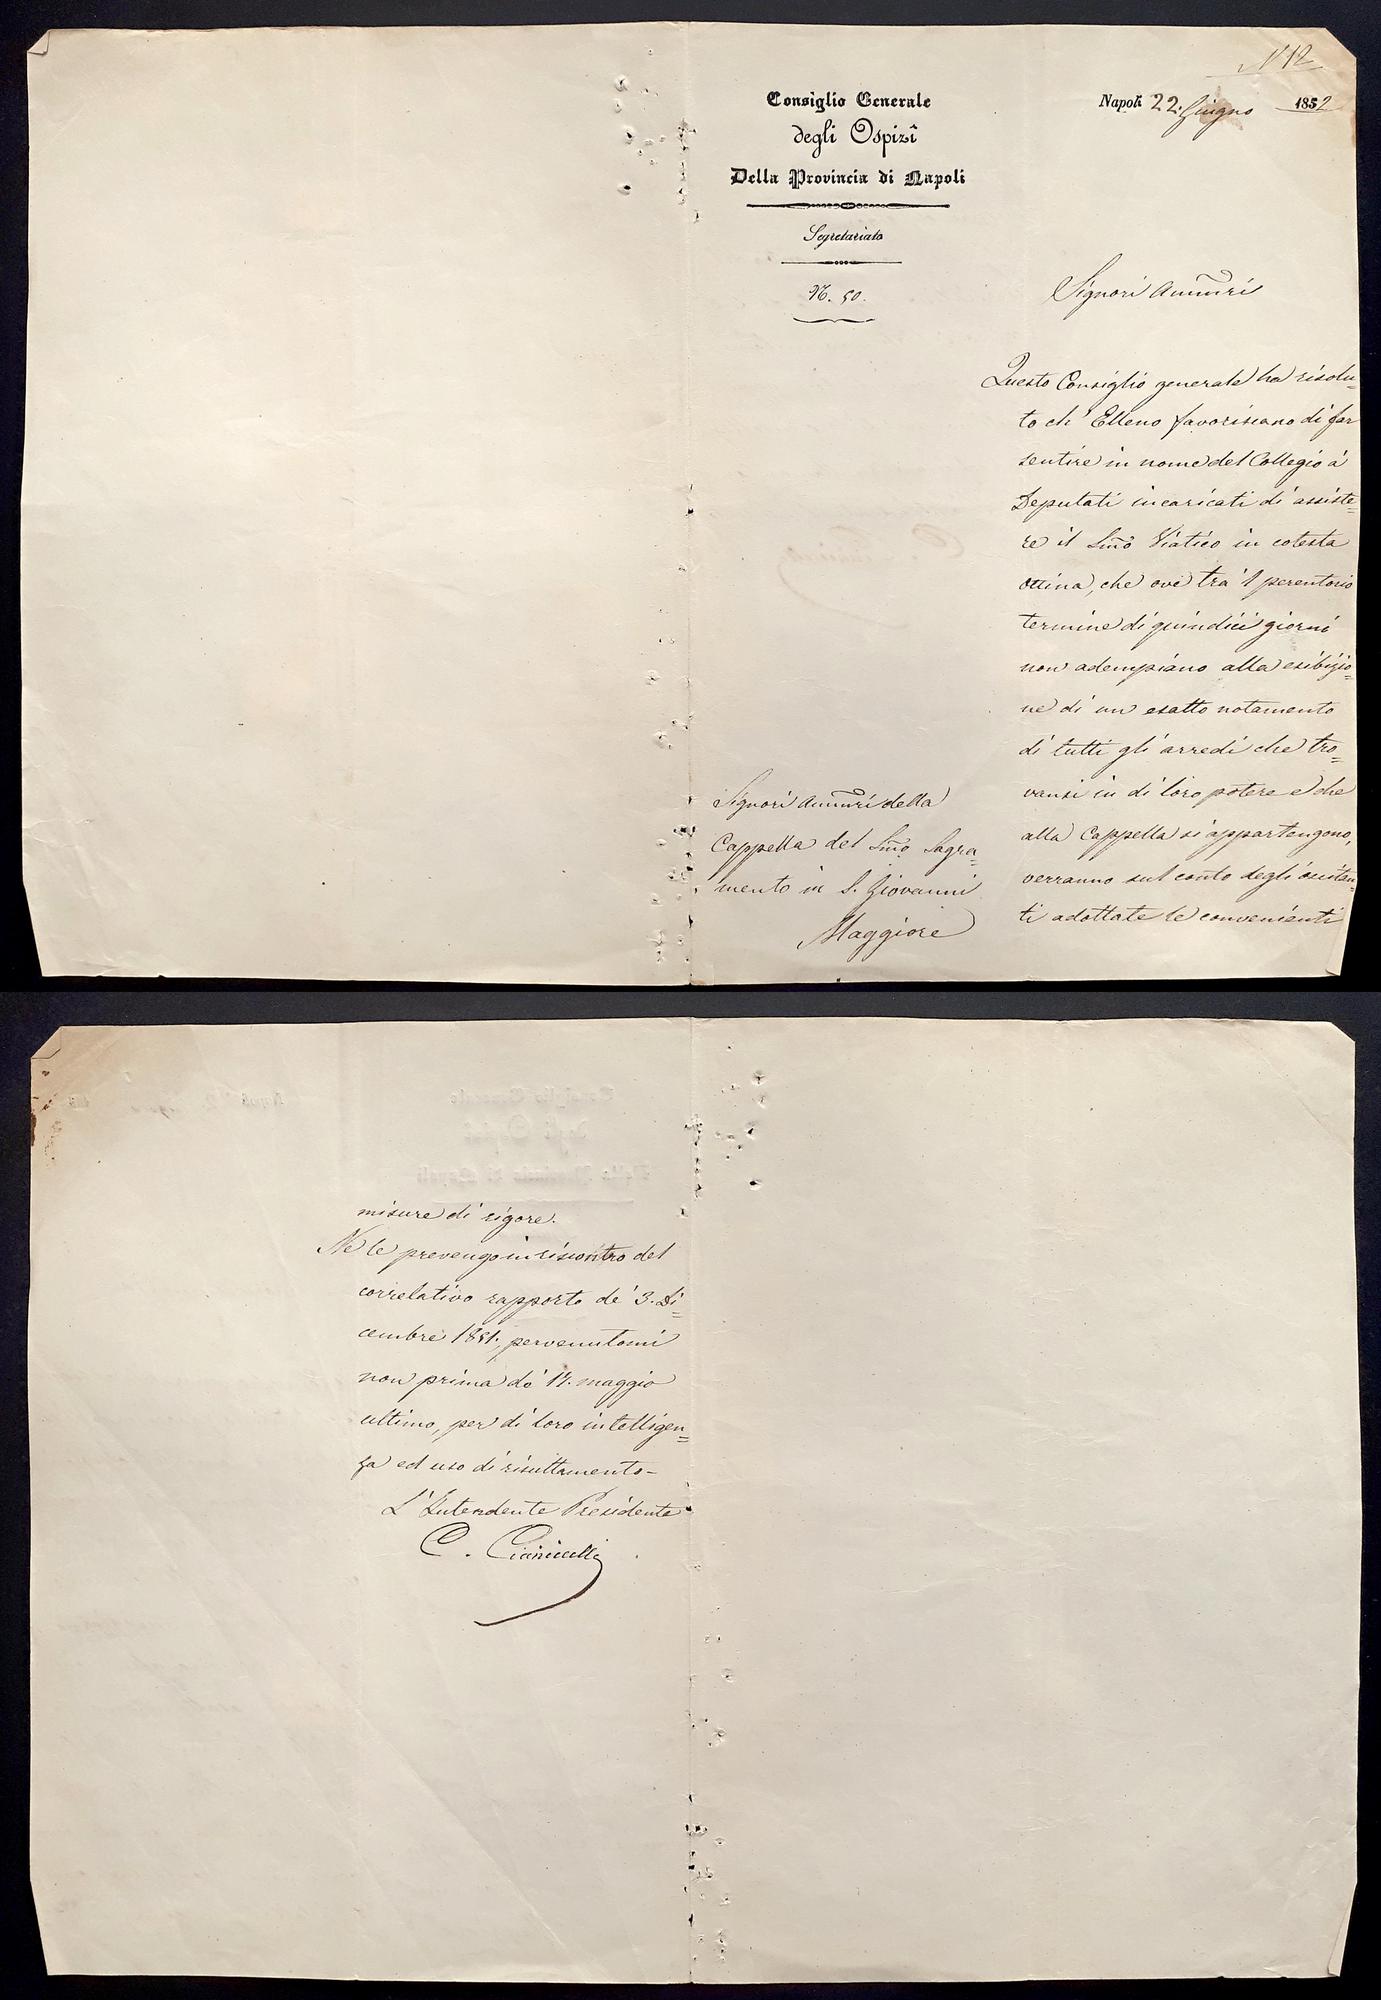 N 12
Consiglio Generale
degli Ospizî
Della Provincia di Napoli
Segretariato
N. 50.
Napoli 22: Giugno 1852
Signori Ammri
Questo Consiglio generale ha risolu=
to ch' Elleno favoriscano di far
sentire in nome del Collegio a'
Deputati incaricati di assiste=
re il Smo Viatico in cotesta
ottina, che ove tra 'l perentorio
termine di quindici giorni
non adempiano alla esibizio=
ne di un esatto notamento
di tutti gli arredi che tro=
vansi in di loro potere e che
alla Cappella si appartengono,
verranno sul conto degli esitan=
ti adottate le convenienti
Signori Ammri della
Cappella del Smo Sagra=
mento in S. Giovanni
Maggiore
misure di rigore.
Ne le prevengo in riscontro del
correlativo rapporto de' 3. Di=
cembre 1851, pervenutomi
non prima de' 17. maggio
ultimo, per di loro intelligen=
za ed uso di risultamento-
L'Intendente Presidente
C. Cianciulli